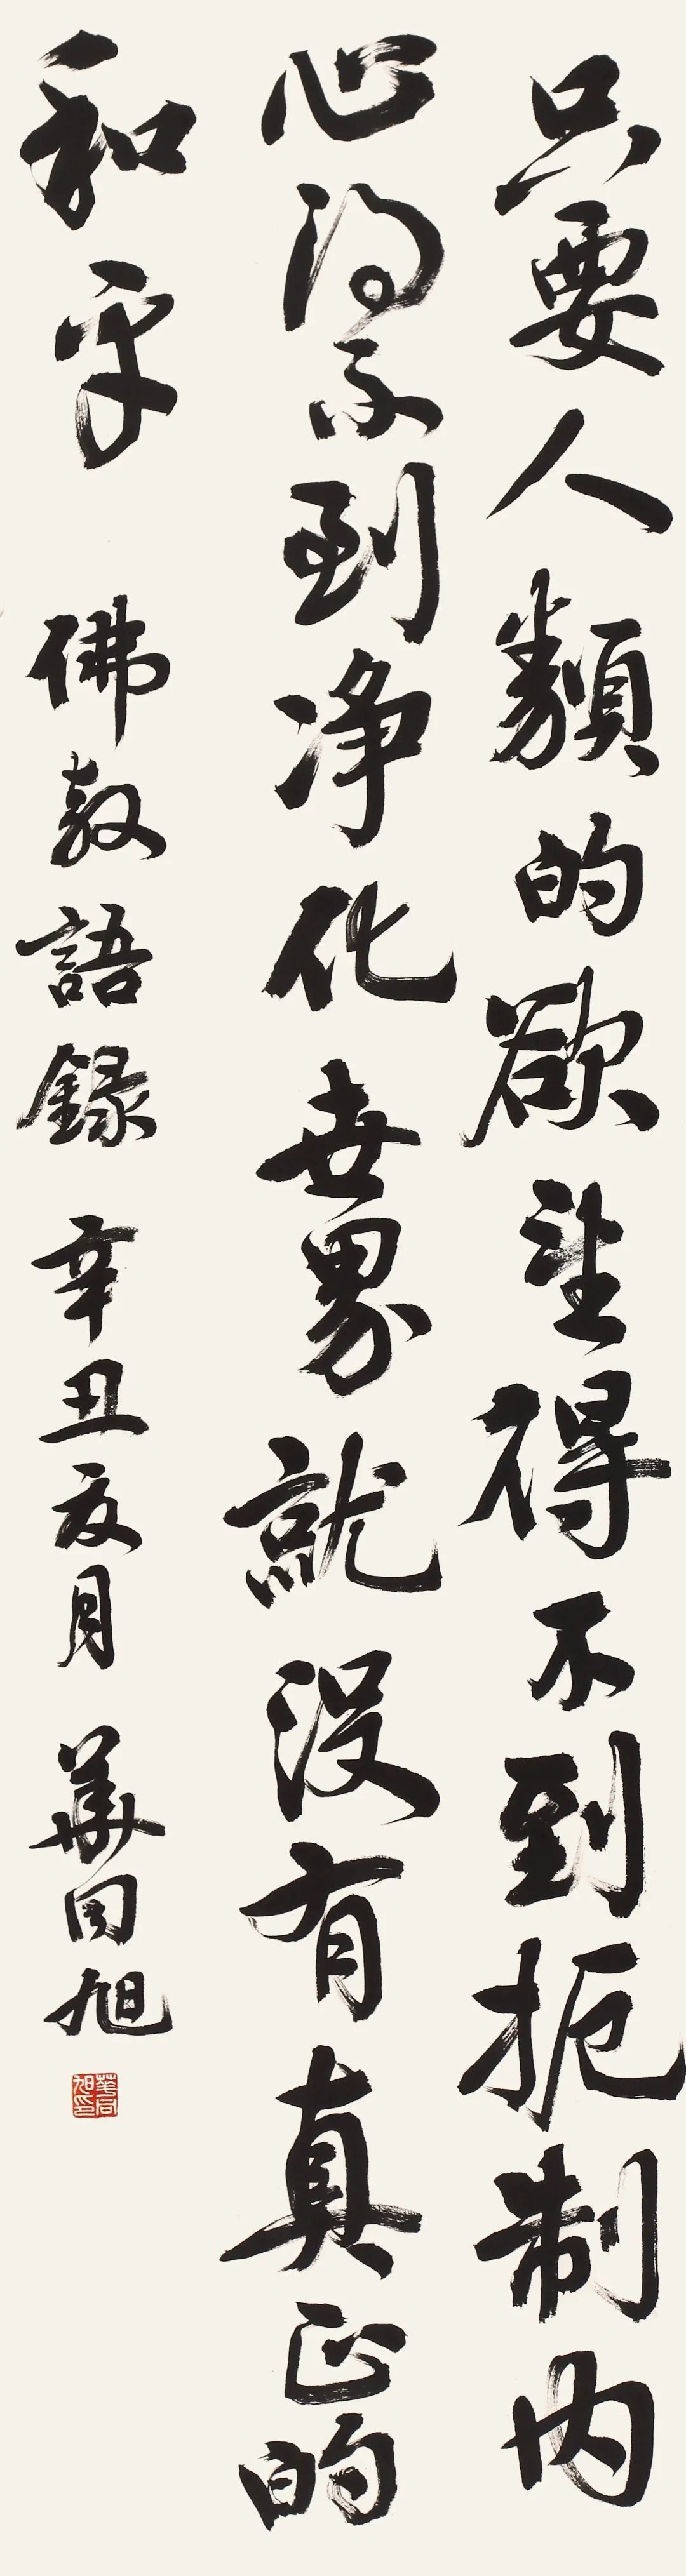 只要人類的欲望得不到扼制内
心得不到净化世界就没有真正的
和平 佛教語録 辛丑夏月 華同旭
華同旭印